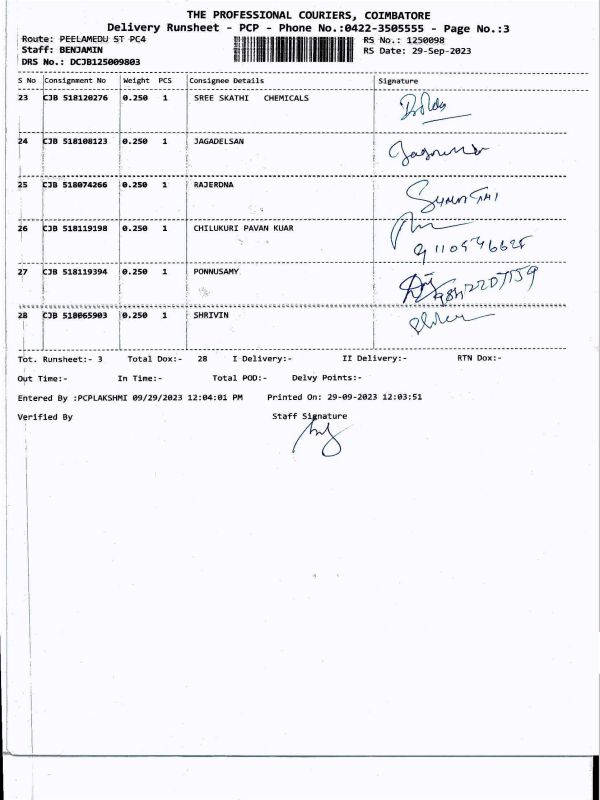 THE PROFESSIONAL COURIERS, COIMBATORE
Delivery Runsheet - PCP - Phone No.:0422-3505555 - Page No.:3
Route: PEELAMEDU ST PC4 RS No.: 1250098
Staff: BENJAMIN RS Date: 29-Sep-2023
DRS No.: DCJB125009803
S No Consignment No Weight PCS Consignee Details Signature
23 CJB 518120276 0.250 1 SREE SKATHI CHEMICALS
24 CJB 518108123 0.250 1 JAGADELSAN
25 CJB 518074266 0.250 1 RAJERDNA
26 CJB 518119198 0.250 1 CHILUKURI PAVAN KUAR
27 CJB 518119394 0.250 1 PONNUSAMY
28 CJB 518065903 0.250 1 SHRIVIN
Tot. Runsheet:- 3 Total Dox:- 28 I Delivery:- II Delivery:- RTN Dox:-
Out Time:- In Time:- Total POD:- Delvy Points:-
Entered By :PCPLAKSHMI 09/29/2023 12:04:01 PM Printed On: 29-09-2023 12:03:51
Verified By Staff Signature